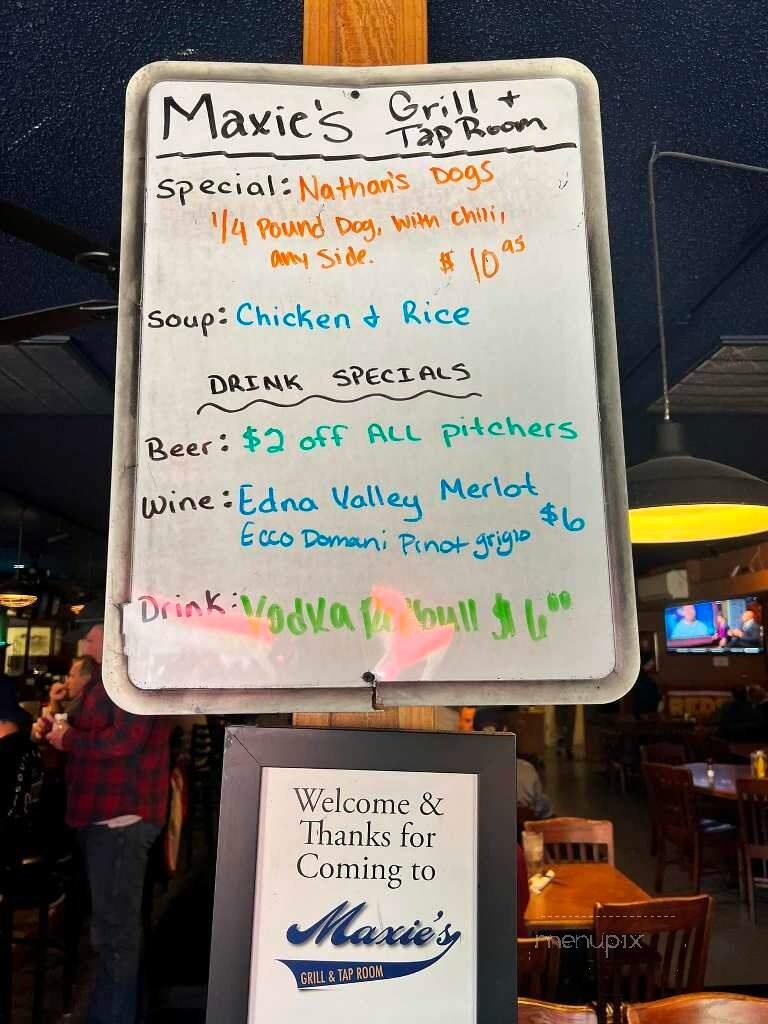 Maxie's Grill +
Tap Room
Special: Nathan's Dogs
1/4 Pound Dog, with chili,
any side. $10 95
Soup: Chicken & Rice
DRINK SPECIALS
Beer: $2 off ALL pitchers
Wine: Edna Valley Merlot
Ecco Domani Pinot grigio $6
Drink: Vodka Redbull $6 00
Welcome &
Thanks for
Coming to
Maxie's
GRILL & TAP ROOM
menupix